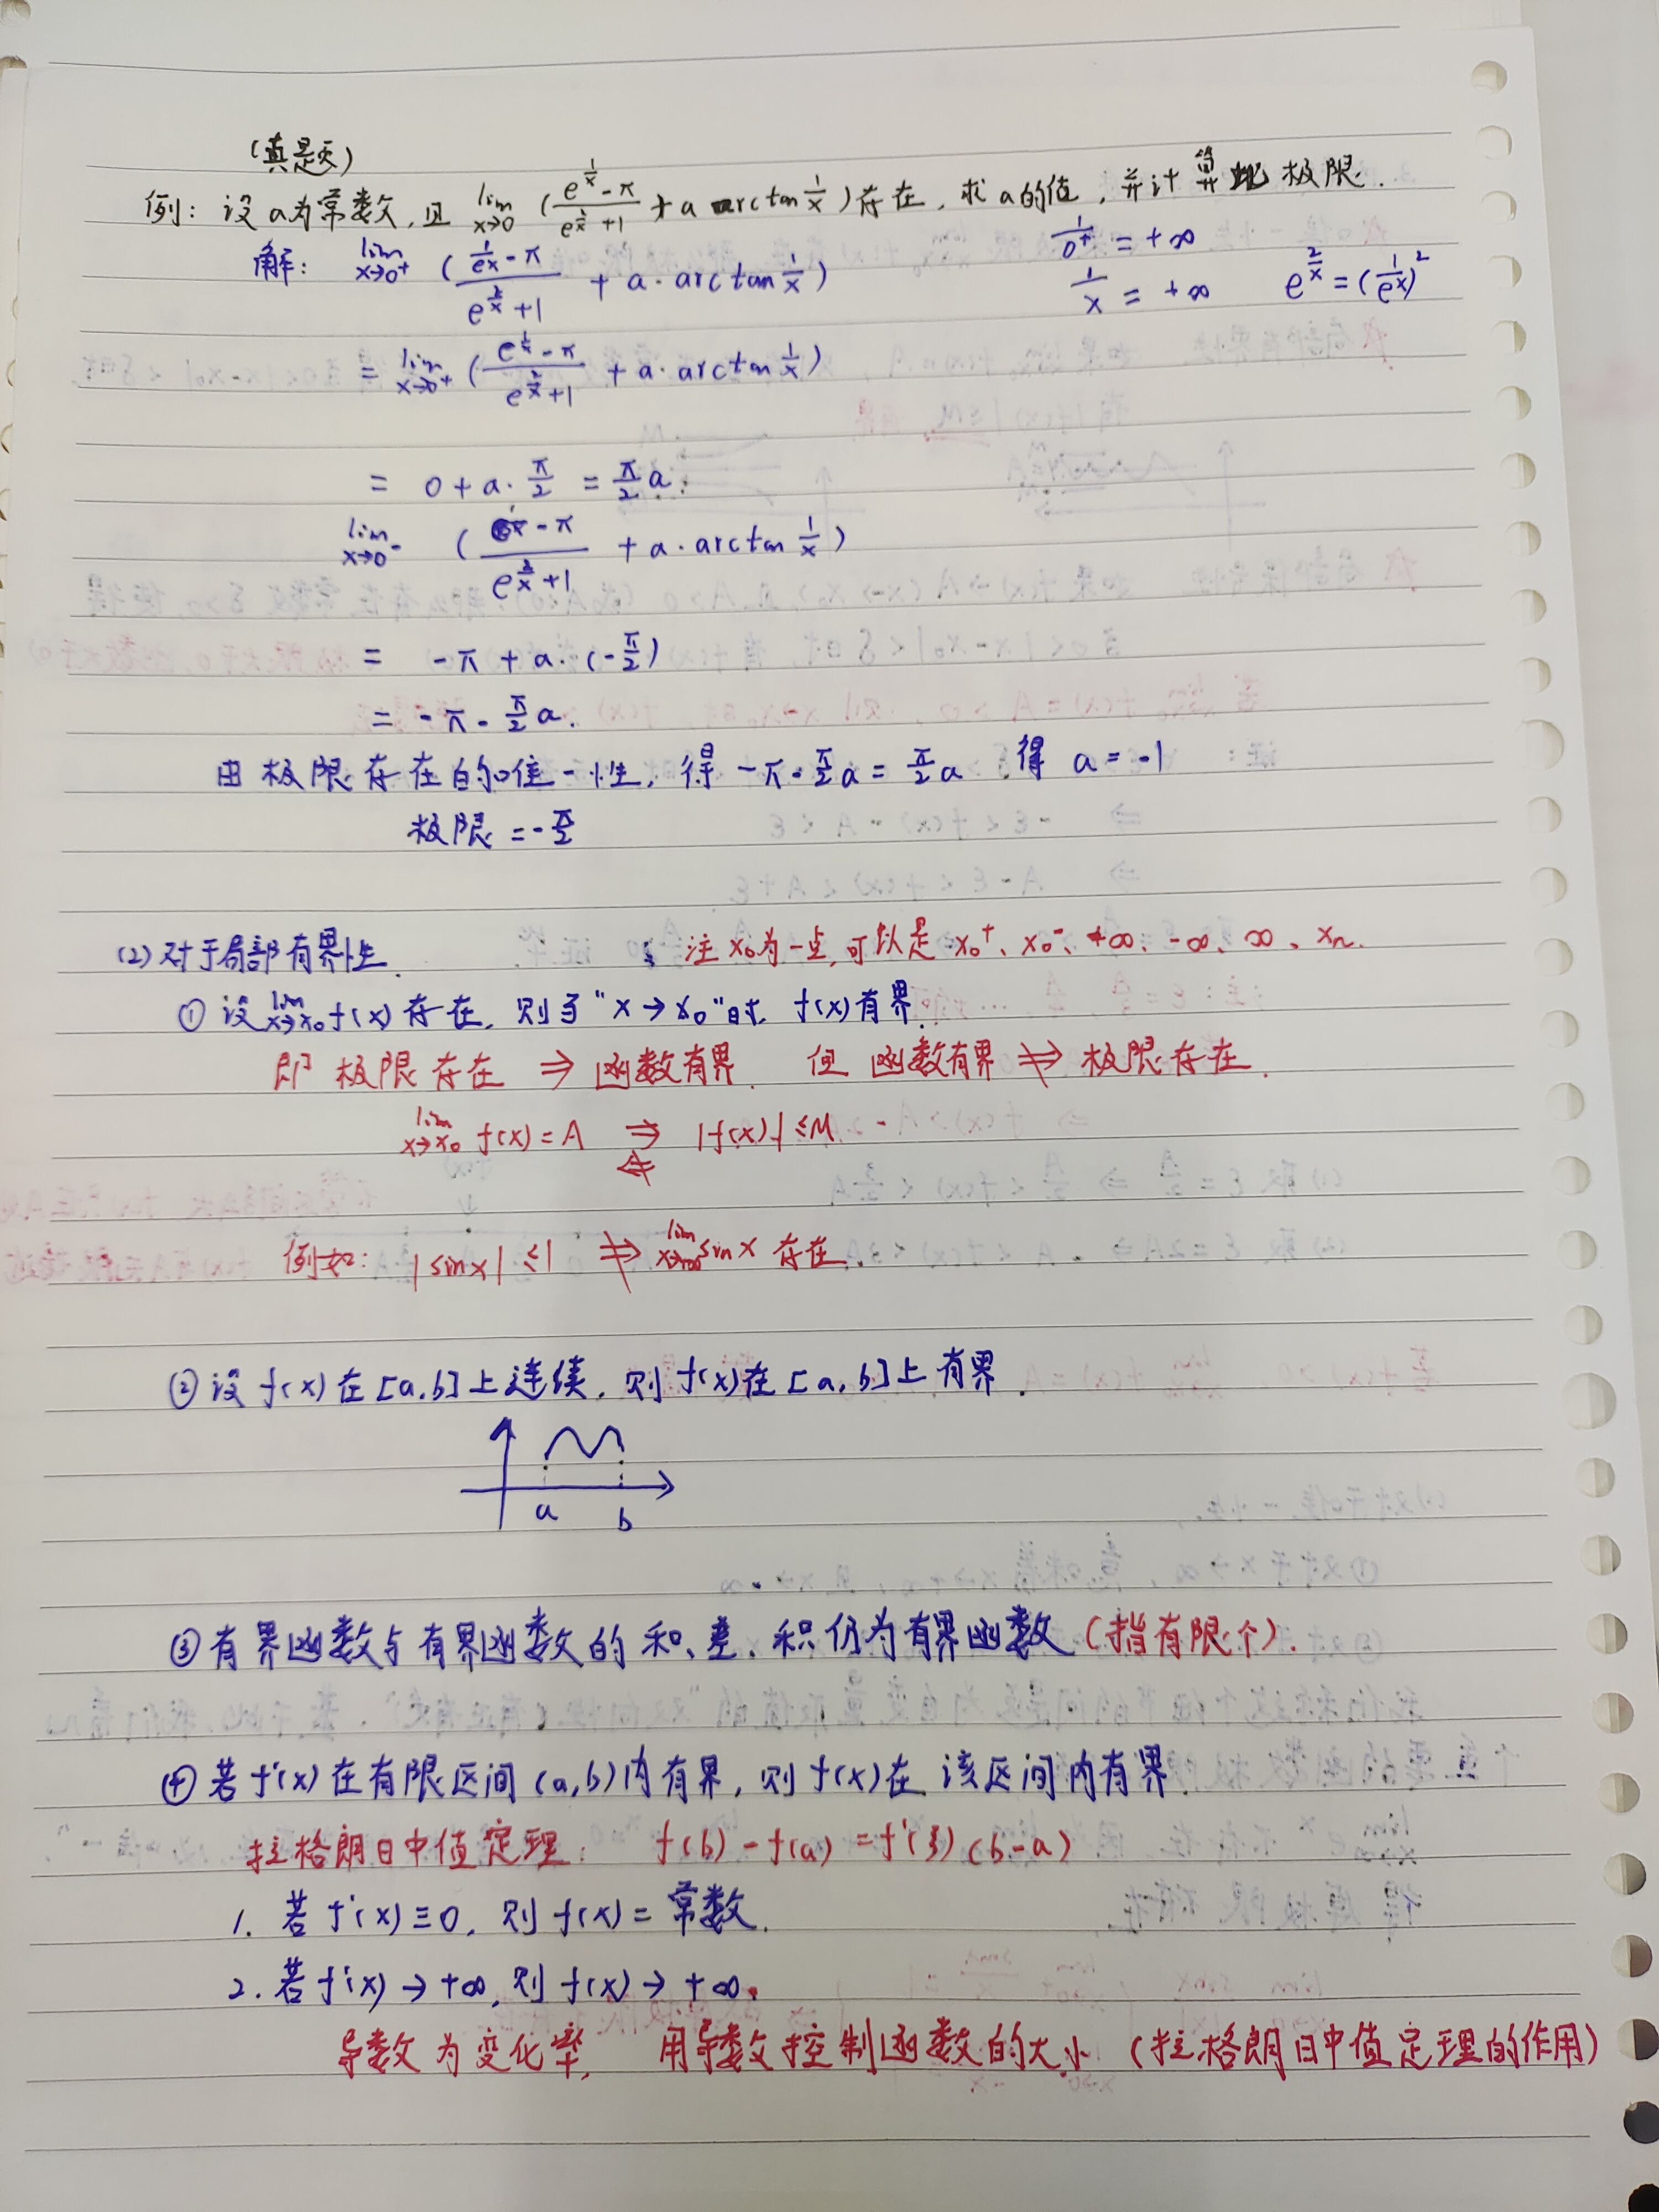 (真题)
例: 设a为常数,且 lim x→0 (e^(1/x) - π / e^(2/x) + 1 + a arctan 1/x) 存在, 求a的值, 并计算此极限.
解: lim x→0⁺ (e^(1/x) - π / e^(2/x) + 1 + a · arctan 1/x) 1/0⁺ = +∞
1/x = +∞ e^(2/x) = (e^(1/x))²
= lim x→0⁺ (e^(1/x) - π / e^(2/x) + 1 + a · arctan 1/x)
= 0 + a · π/2 = π/2 a.
lim x→0⁻ (e^(1/x) - π / e^(2/x) + 1 + a · arctan 1/x)
= -π + a · (-π/2)
= -π - π/2 a.
由极限存在的唯一性, 得 -π - π/2 a = π/2 a, 得 a = -1
极限 = -π/2
(2) 对于局部有界性. 注 x₀为一点, 可以是 x₀⁺、x₀⁻、+∞、-∞、∞、xₙ.
① 设 lim x→x₀ f(x) 存在, 则当 "x→x₀" 时, f(x) 有界.
即 极限存在 ⇒ 函数有界. 但 函数有界 ⇏ 极限存在.
lim x→x₀ f(x) = A ⇒ ⇍ |f(x)| ≤ M.
例如: |sinx| ≤ 1 ⇏ lim x→∞ sinx 存在.
② 设 f(x) 在 [a,b] 上连续, 则 f(x) 在 [a,b] 上有界.
a b
③ 有界函数与有界函数的和、差、积仍为有界函数 (指有限个).
④ 若 f'(x) 在有限区间 (a,b) 内有界, 则 f(x) 在该区间内有界.
拉格朗日中值定理: f(b) - f(a) = f'(ξ)(b-a)
1. 若 f'(x) ≡ 0, 则 f(x) = 常数.
2. 若 f'(x) → +∞, 则 f(x) → +∞.
导数为变化率, 用导数控制函数的大小 (拉格朗日中值定理的作用)